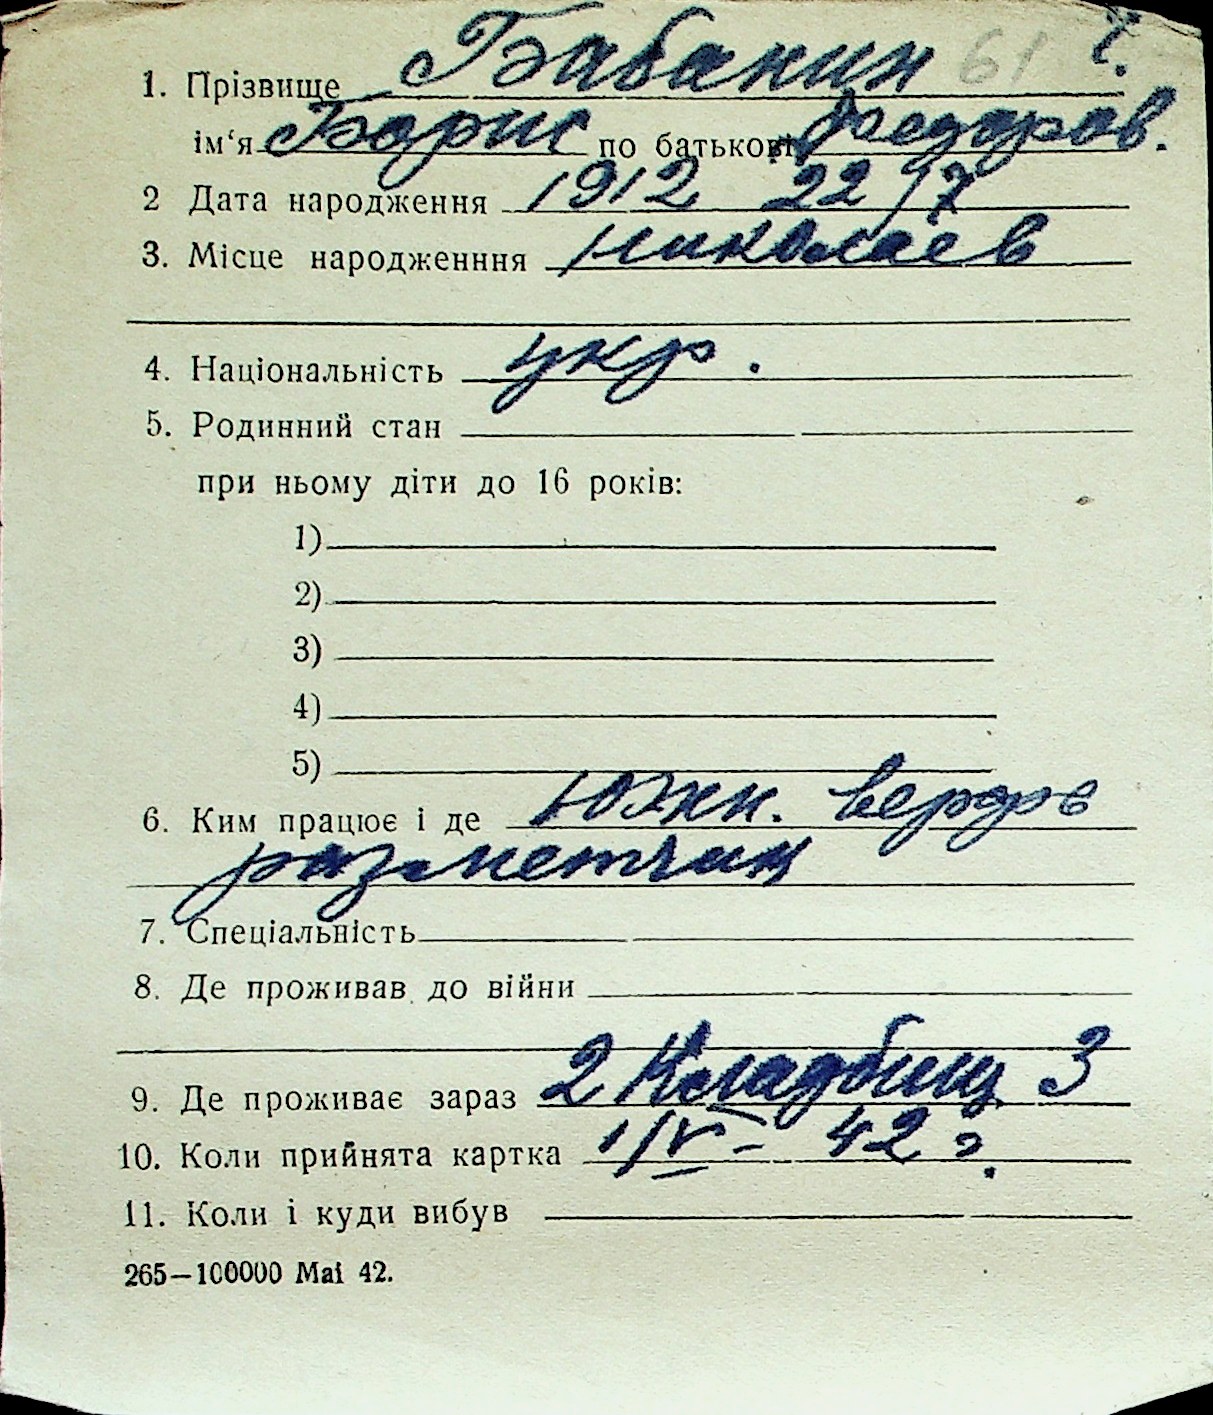 1. Прізвище Бабакин 61 ч.
ім'я Борис по батькові Федоров.
2 Дата народження 1912 22/7
3. Місце народженння Николаев
4. Національність укр.
5. Родинний стан
при ньому діти до 16 років:
1)
2)
3)
4)
5)
6. Ким працює і де Южн. верфь
разметчик
7. Спеціальність
8. Де проживав до війни
9. Де проживає зараз 2 Кладбищ 3
10. Коли прийнята картка 1/V - 42 г.
11. Коли і куди вибув
265—100000 Mai 42.